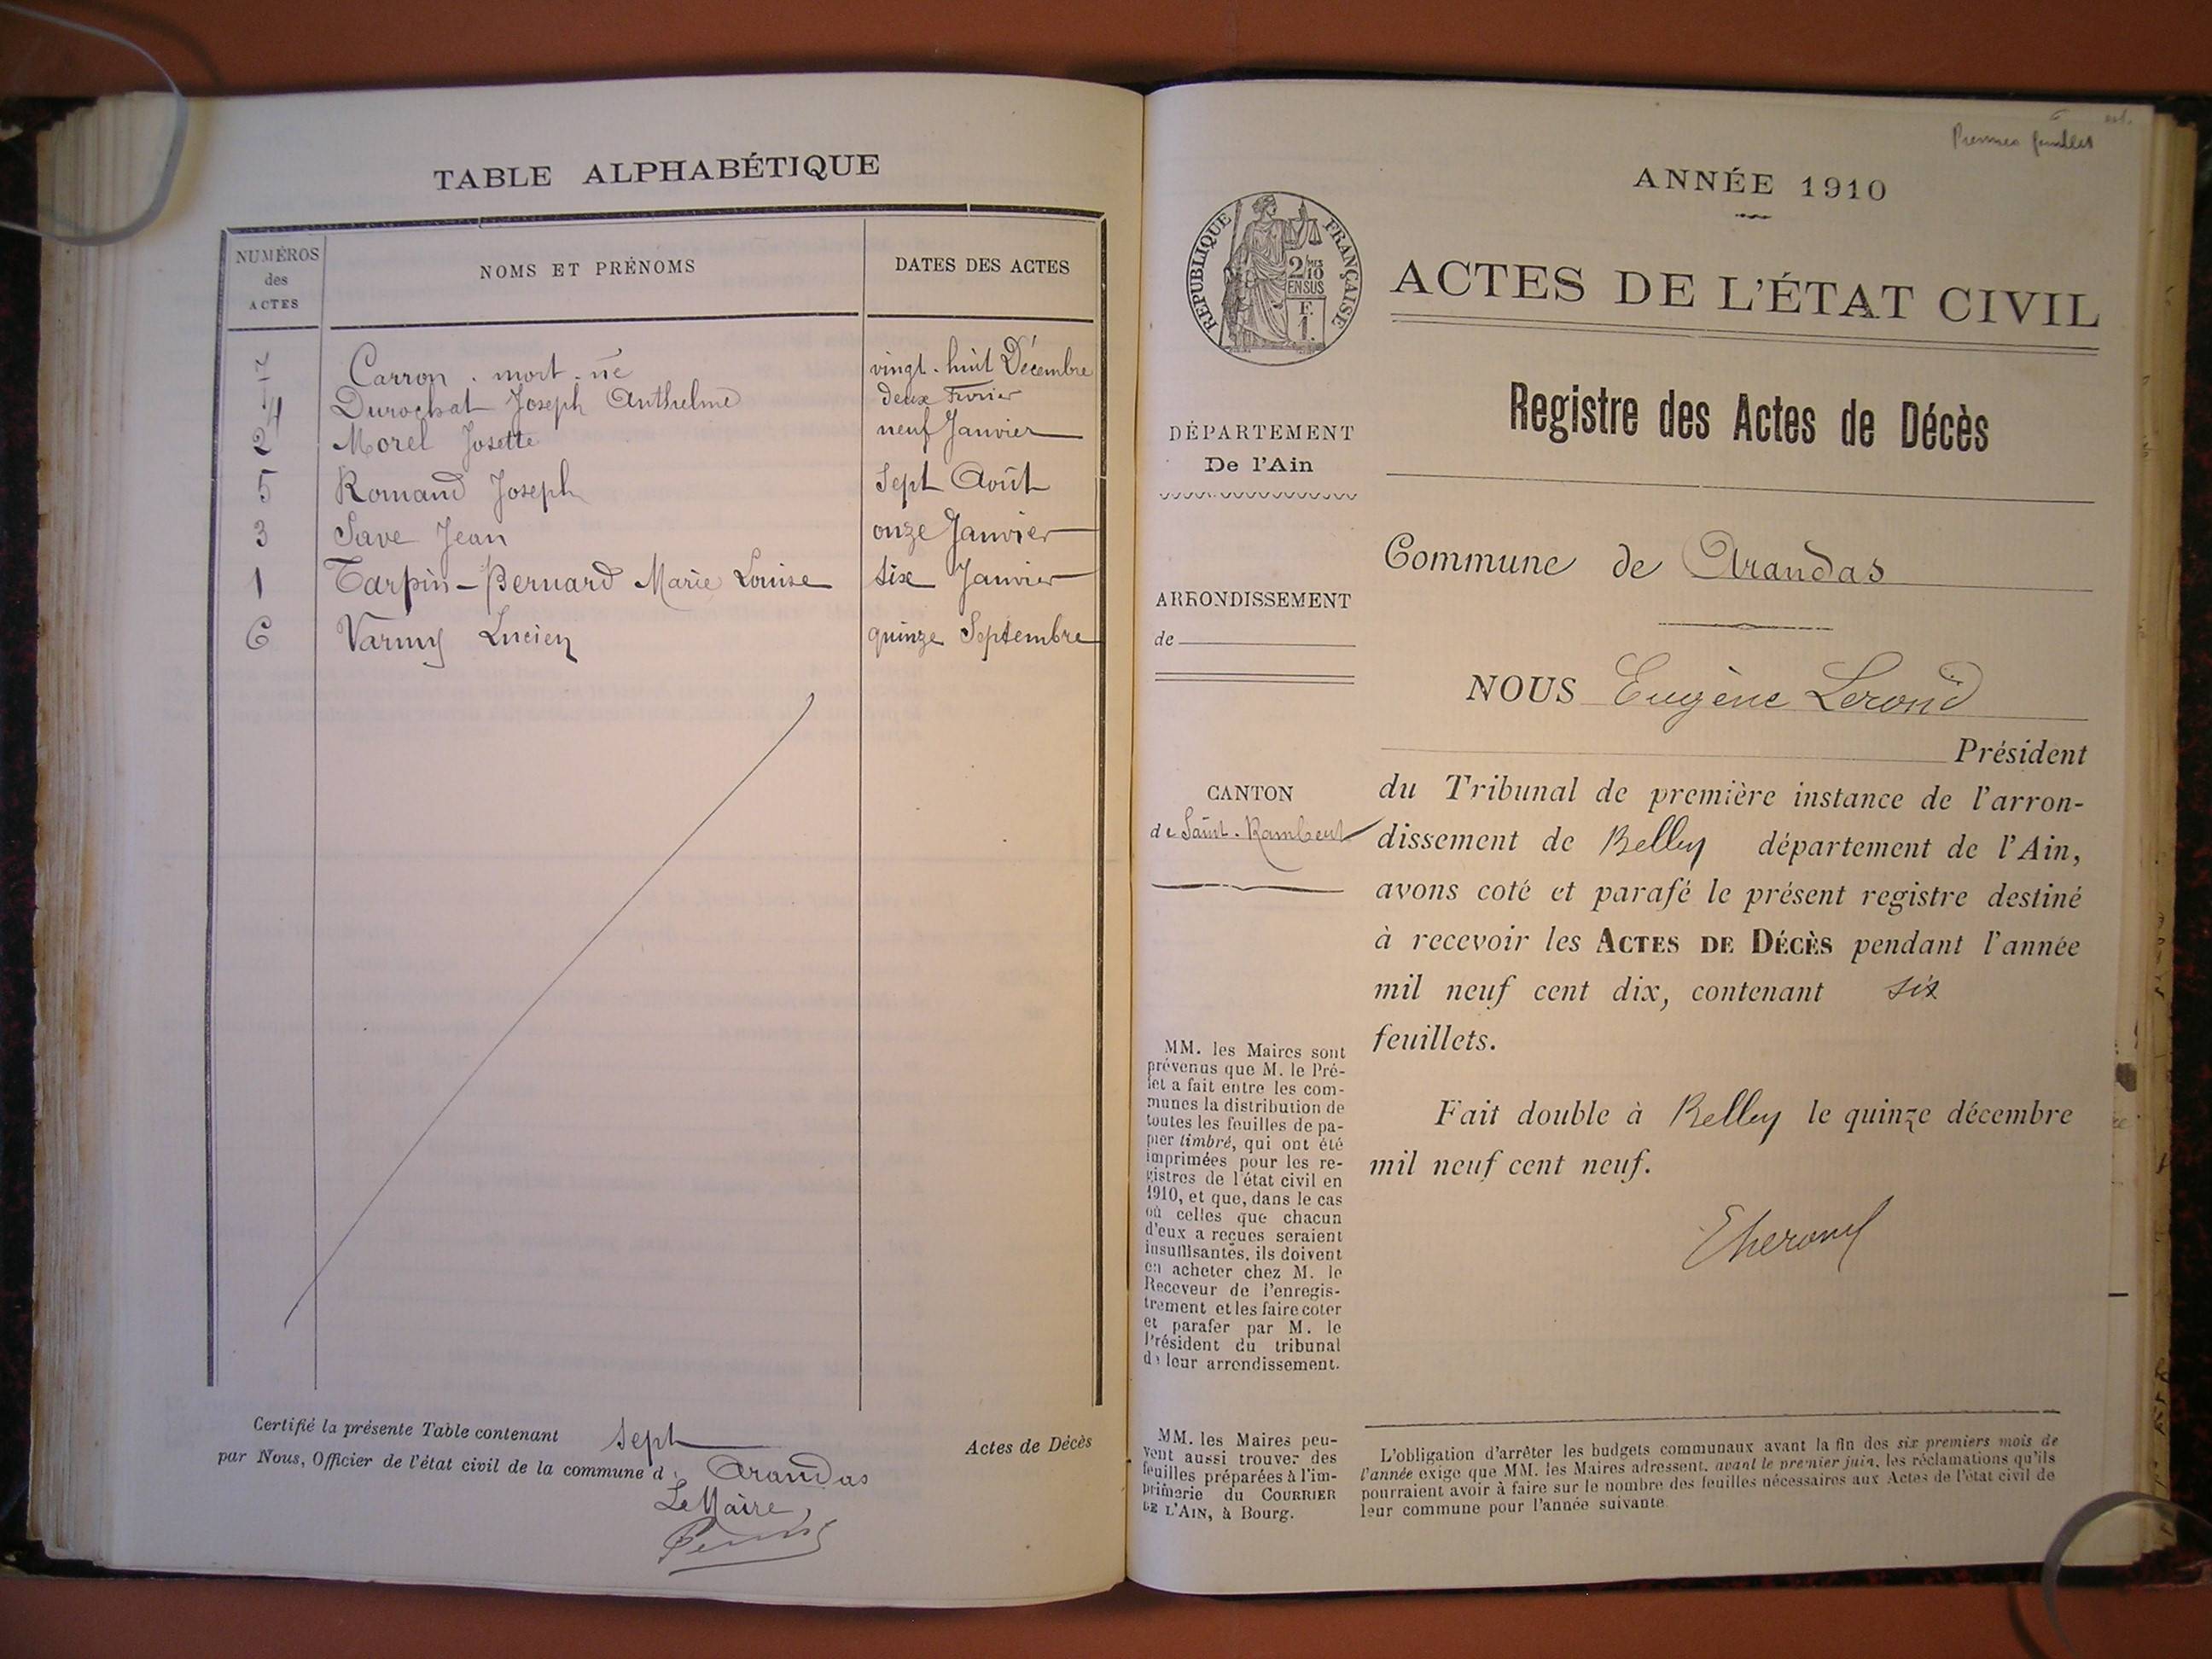 TABLE ALPHABÉTIQUE
NUMÉROS
des
ACTES
NOMS ET PRÉNOMS
DATES DES ACTES
7 Carron . mort . né vingt . huit Décembre
4 Durochat Joseph Anthelme deux Fevrier
2 Morel Josette neuf Janvier
5 Romand Joseph Sept Août
3 Save Jean onze Janvier
1 Tarpin-Bernard Marie Louise six Janvier
6 Varvuy Lucien quinze Septembre
Certifié la présente Table contenant Sept Actes de Décès
par Nous, Officier de l'état civil de la commune d Arandas
Le Maire,
Premiers feuillet
ANNÉE 1910
RÉPUBLIQUE FRANÇAISE
2/10
EN SUS
F.
1.
ACTES DE L'ÉTAT CIVIL
Registre des Actes de Décès
DÉPARTEMENT
De l'Ain
Commune de Arandas
ARRONDISSEMENT
de
NOUS Eugène Lerond
Président
CANTON
de Saint-Rambert
du Tribunal de première instance de l'arron-
dissement de Belley département de l'Ain,
avons coté et parafé le présent registre destiné
à recevoir les ACTES DE DÉCÈS pendant l'année
mil neuf cent dix, contenant six
feuillets.
Fait double à Belley le quinze décembre
mil neuf cent neuf.
MM. les Maires sont
prévenus que M. le Pré-
fet a fait entre les com-
munes la distribution de
toutes les feuilles de pa-
pier timbré, qui ont été
imprimées pour les re-
gistres de l'état civil en
1910, et que, dans le cas
où celles que chacun
d'eux a reçues seraient
insuffisantes, ils doivent
en acheter chez M. le
Receveur de l'enregis-
trement et les faire coter
et parafer par M. le
Président du tribunal
de leur arrondissement.
MM. les Maires peu-
vent aussi trouver des
feuilles préparées à l'im-
primerie du COURRIER
DE L'AIN, à Bourg.
L'obligation d'arrêter les budgets communaux avant la fin des six premiers mois de
l'année exige que MM. les Maires adressent, avant le premier juin, les réclamations qu'ils
pourraient avoir à faire sur le nombre des feuilles nécessaires aux Actes de l'état civil de
leur commune pour l'année suivante